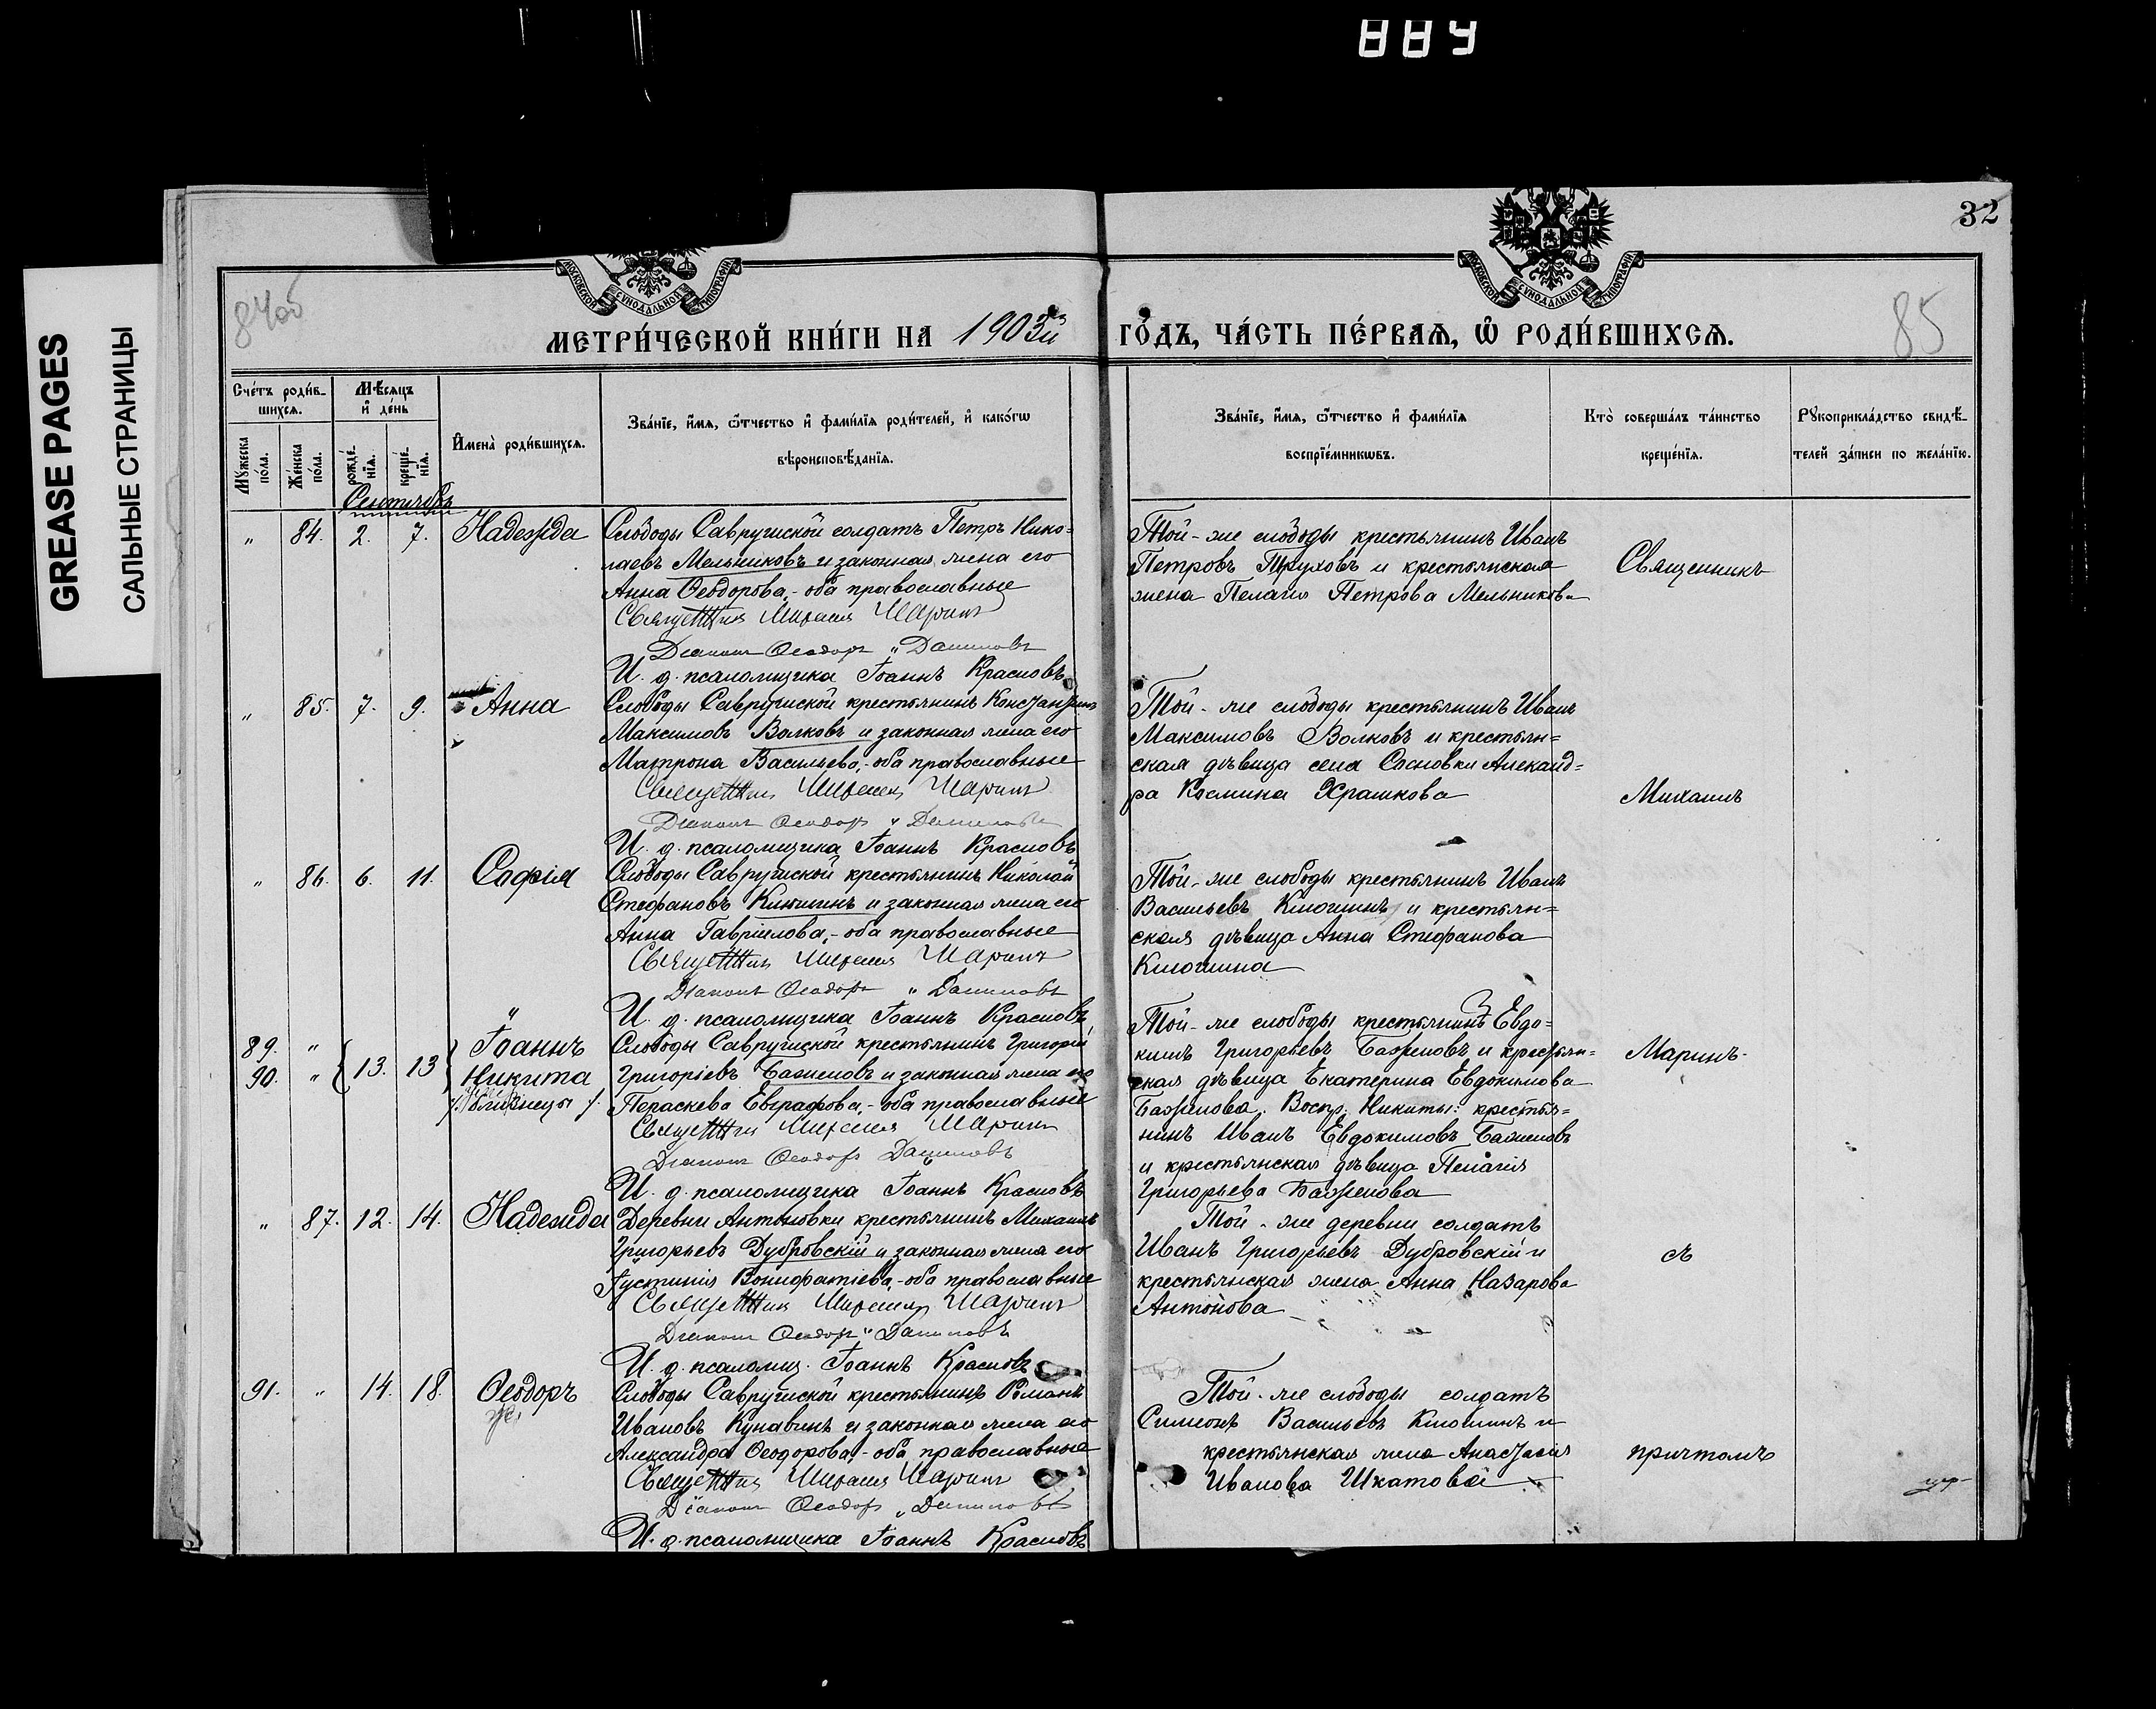 889
GREASE PAGES
САЛЬНЫЕ СТРАНИЦЫ
32
84об
85
МОСКОВСКОЙ СѴНОДАЛЬНОЙ ТИПОГРАФІИ
МОСКОВСКОЙ СѴНОДАЛЬНОЙ ТИПОГРАФІИ
МЕТРИ́ЧЕСКОЙ КНИ́ГИ НА 1903й ГО́ДЪ, ЧА́СТЬ ПЕ́РВАѦ, Ѡ РОДИ́ВШИХСѦ.
Сче́тъ роди́в-
шихсѧ.
Мѣ́сѧцъ
и҆ де́нь
Мꙋ́жеска
по́ла.
Же́нска
по́ла.
рожде́-
нїѧ.
креще́-
нїѧ.
И҆мена̀ роди́вшихсѧ.
Зва́нїе, и҆́мѧ, ѻ҆́тчество и҆ фами́лїѧ роди́телей, и҆ како́гѡ
вѣроисповѣ́данїѧ.
Зва́нїе, и҆́мѧ, ѻ҆́тчество и҆ фами́лїѧ
воспрїе́мникѡвъ.
Кто̀ соверша́лъ та́инство
креще́нїѧ.
Рꙋкоприкла́дство свидѣ́-
телей за́писи по жела́нїю.
Сентябрь
" 84. 2. 7. Надежда
Слободы Савружской солдатъ Петръ Нико=
лаевъ Мельниковъ и законная жена его
Анна Ѳеодорова, - оба православные
Священник Михаил Маринъ
Діаконъ Ѳеодоръ Даниловъ
И. д. псаломщика Іоаннъ Красновъ
Той-же слободы крестьянинъ Иванъ
Петровъ Труховъ и крестьянская
жена Пелагія Петрова Мельникова
Священникъ
" 85. 7. 9. Анна
Слободы Савружской крестьянинъ Константинъ
Максимовъ Волковъ и законная жена его
Матрона Васильева, - оба православные
Священник Михаил Маринъ
Діаконъ Ѳеодоръ Даниловъ
И. д. псаломщика Іоаннъ Красновъ
Той-же слободы крестьянинъ Иванъ
Максимовъ Волковъ и крестьян=
ская дѣвица села Сосновки Александ=
ра Космина Храмкова
Михаилъ
" 86. 6. 11. Софія
Слободы Савружской крестьянинъ Николай
Стефановъ Клюшинъ и законная жена его
Анна Гавріилова, - оба православные
Священник Михаил Маринъ
Діаконъ Ѳеодоръ Даниловъ
И. д. псаломщика Іоаннъ Красновъ
Той-же слободы крестьянинъ Иванъ
Васильевъ Клюшинъ и крестьян=
ская дѣвица Анна Стефанова
Клюшина
89. " 13. 13 Іоаннъ
90. " Никита
/близнецы/.
Слободы Савружской крестьянинъ Григорій
Григоріевъ Баженовъ и законная жена его
Параскева Евграфова, - оба православные
Священник Михаил Маринъ
Діаконъ Ѳеодоръ Даниловъ
И. д. псаломщика Іоаннъ Красновъ
Той-же слободы крестьянинъ Евдо=
кимъ Григорьевъ Баженовъ и крестьян=
ская дѣвица Екатерина Евдокимова
Баженова. Воспр. Никиты: крестья=
нинъ Иванъ Евдокимовъ Баженовъ
и крестьянская дѣвица Пелагія
Григорьева Баженова
Маринъ
" 87. 12. 14. Надежда
Деревни Антоновки крестьянинъ Михаилъ
Григорьевъ Дубровскій и законная жена его
Іустинія Вонифатіева, - оба православные
Священник Михаил Маринъ
Діаконъ Ѳеодоръ Даниловъ
И. д. псаломщ. Іоаннъ Красновъ
Той-же деревни солдатъ
Иванъ Григорьевъ Дубровскій и
крестьянская жена Анна Назарова
Антонова
съ
91. " 14. 18. Ѳеодоръ
Слободы Савружской крестьянинъ Романъ
Ивановъ Кунавинъ и законная жена его
Александра Ѳеодорова, - оба православные
Священник Михаил Маринъ
Діаконъ Ѳеодоръ Даниловъ
И. д. псаломщика Іоаннъ Красновъ
Той-же слободы солдатъ
Симеонъ Васильевъ Клюшинъ и
крестьянская жена Анастасія
Иванова Шкатова
причтомъ